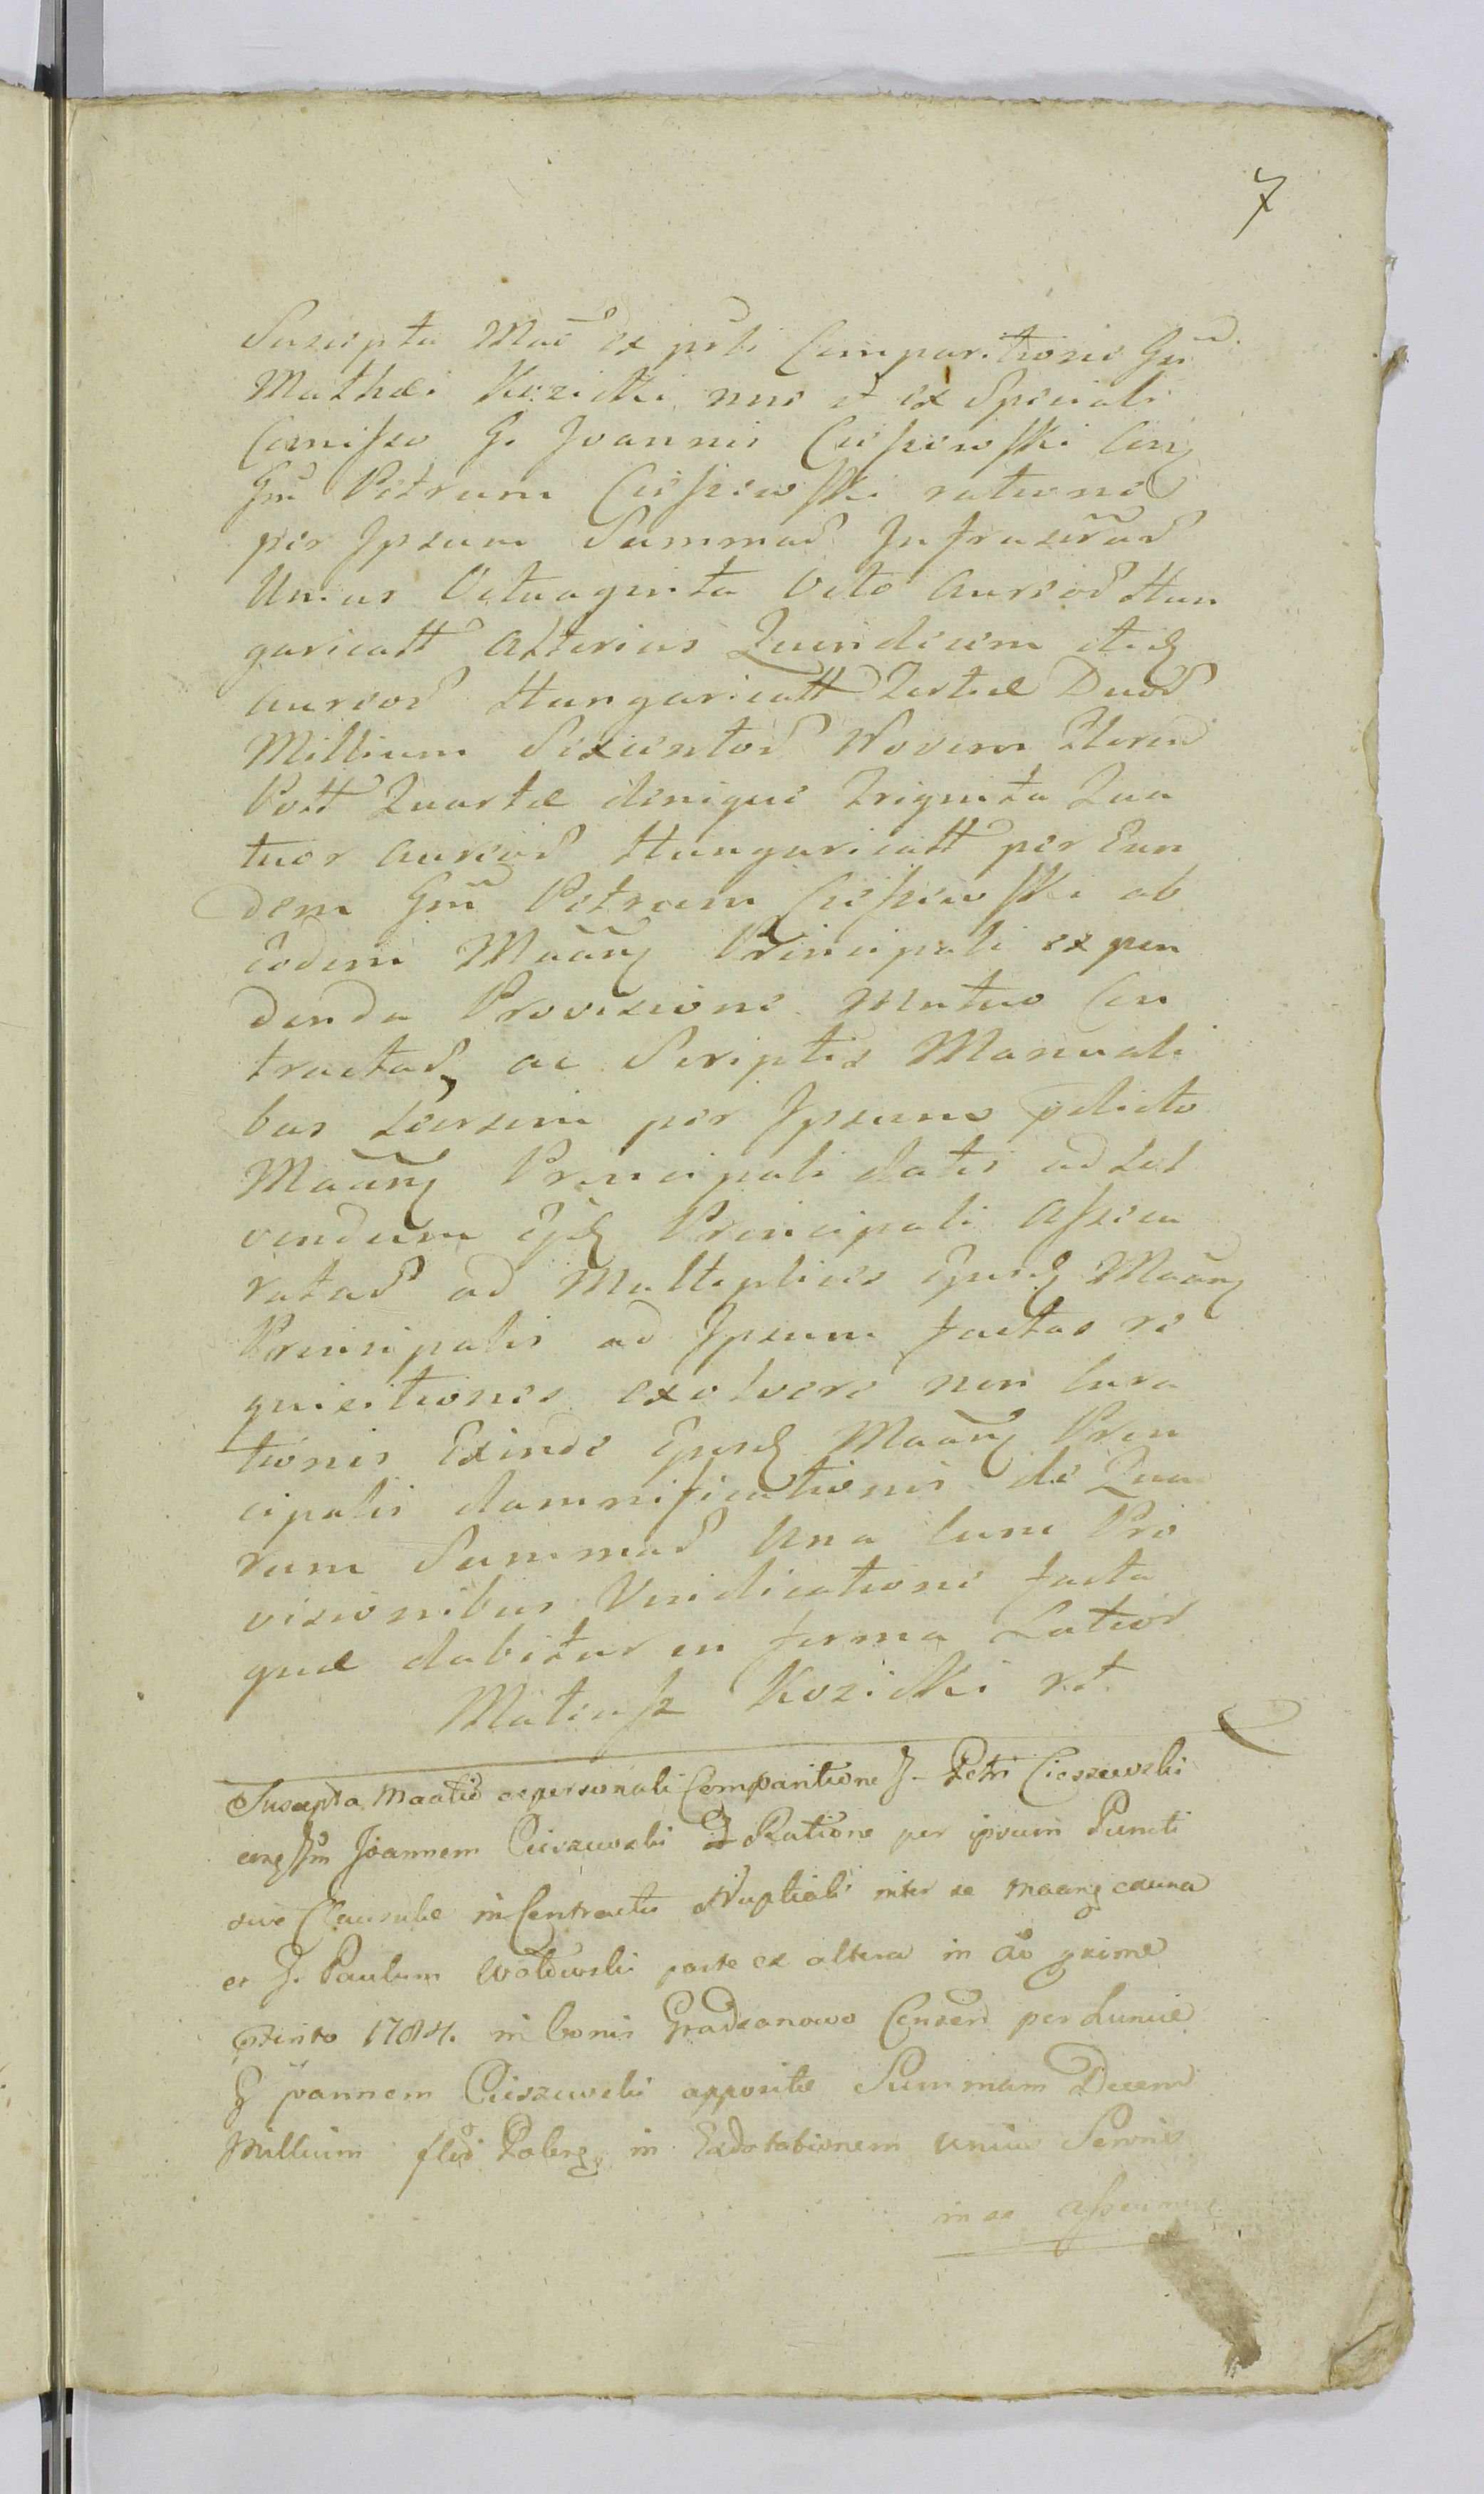 7
Suscepta Maō ex prli Comparitione Gn̄i
Mathæi Kozicki nne et ex Speciali
Comisso G. Joannis Cieszewski Con
Gm̄ Petrum Cieszewski ratione
per Ipsum Summad Infrascr̄ad
Unius Octuaginta Octo Aureod Hun
garicatt Alterius Quindecim itid
Aureod Hungaricatt Tertiæ Duod
Millium Sexcentod Novem Floren
Poll Quartæ denique Triginta Qua
tuor Aureod Hungaricatt per Eun
dem Gm̄ Petrum Cieszewski ab
eodem Māan Principali expen
denda Provisione Mutuo Con
tractad ac Scriptis Manuali
bus seorsim per Ipsum pdicto
Māan Principali datis ad sol
vendum Eid Principali Assecu
ratad ad Multiplices Ejusd Māan
Principalis ad Ipsum factas re
quisitiones exolvere non cura
tionis Exinde Ejusd Māan Prin
cipalis damnificationis de Qua
rum Summad Una cum Pro
visionibus Vindicatione facta
quæ dabitur in forma Latior
Mateusz Kozicki rt
Suscepta Maatio ex personali Comparitione G. Petri Cieszewski
cong Gm̄ Joannem Cieszewski Ratione per ipsum Puncti
sive Clausulæ in Contractu Nuptiali inter se maang ex una
et G. Paulum Wołowski parte ex altera in Ao
1784. in bonis Gradzanowo Conscri per
G Joannem Cieszewski appositæ Summam Decem
Millium flo Polong in Exdotationem unius Sororis
in se